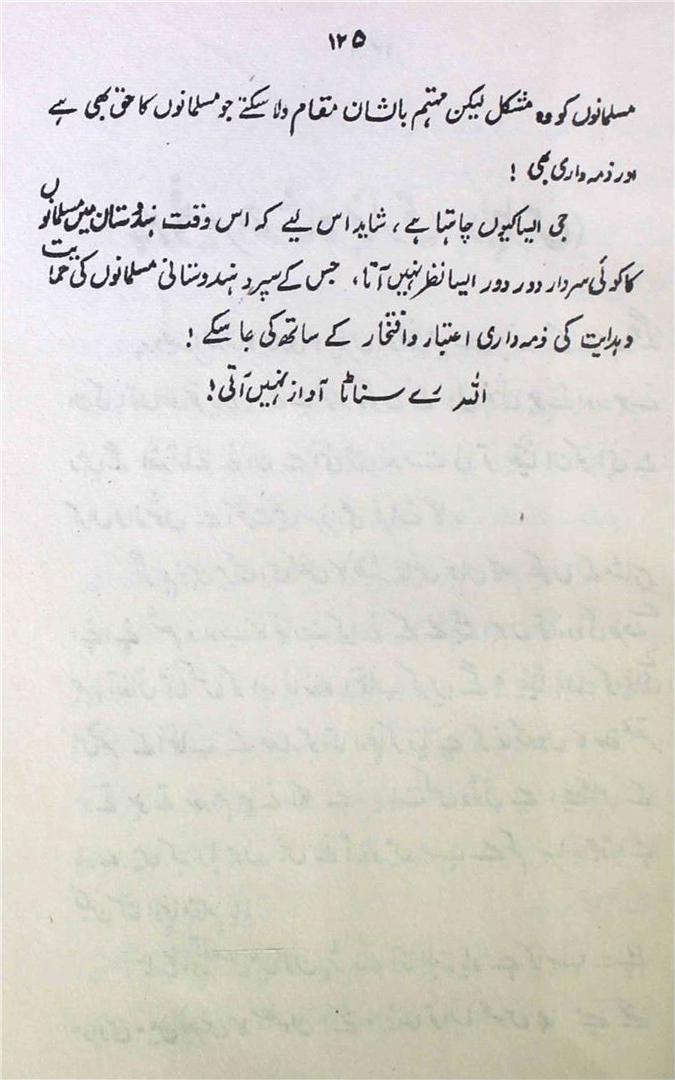 ۱۲۵
مسلمانوں کو وہ مشکل لیکن مہتم بالشان مقام دلا سکتے جو مسلمانوں کا حق بھی ہے
اور ذمہ داری بھی !
جی ایسا کیوں چاہتا ہے ، شاید اس لیے کہ اس وقت ہندوستان میں مسلمانوں
کا کوئی سردار دور دور ایسا نظر نہیں آتا ، جس کے سپرد ہندوستانی مسلمانوں کی حمایت
و ہدایت کی ذمہ داری اعتبار و افتخار کے ساتھ کی جا سکے !
اللہ رے سناٹا آواز نہیں آتی !